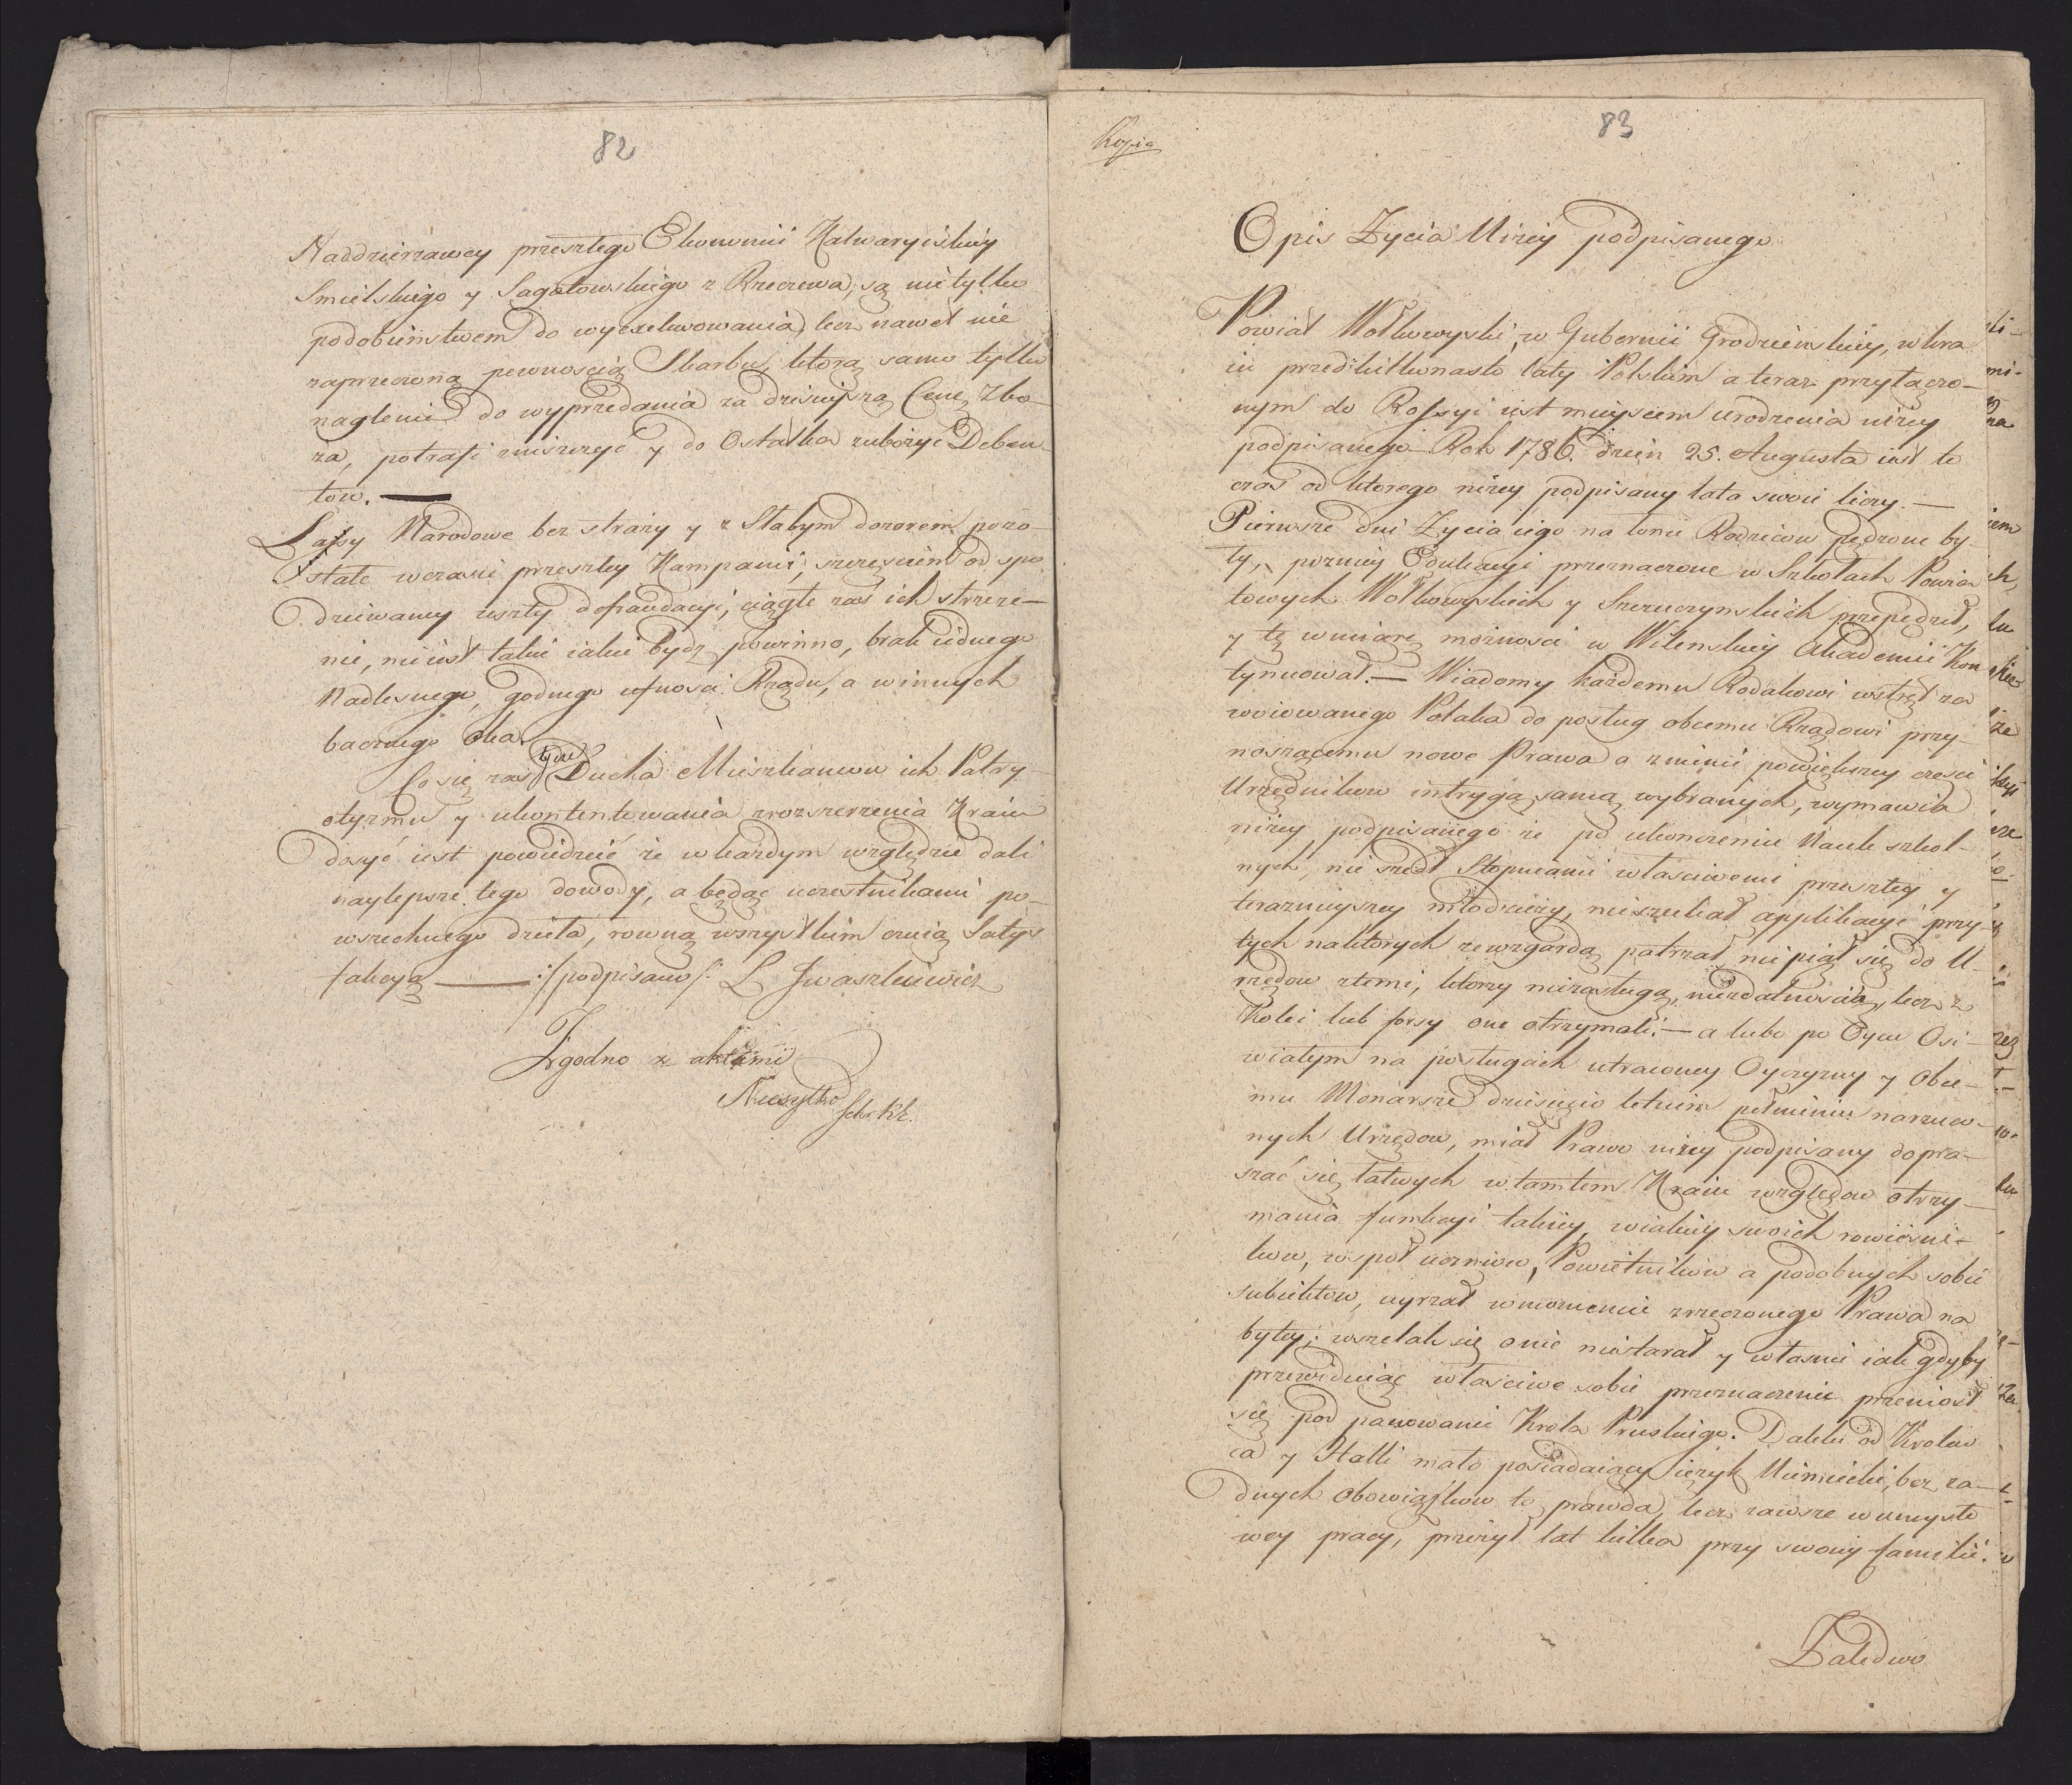 82
Naddzierzawcy przeszłego Ekonomii Kalwaryiskiey
Smielskiego y Sagatowskiego z Krzczewa, są nietylko
podobieństwem do wyexekwowania, lecz nawet nie
zaprzeczoną pewnoscią Skarbu, ktorą samo tylko
naglenie do wyprzedania za dzisieyszą Cenę Zbo-
za, potrafi zniszczyć y do Ostatka zubożyć Deben-
tow. —
Lassy Narodowe bez strazy y z Słabym dozorem pozo-
stałe wczasie przeszłey Kampanii, szczęsciem od spo
dziewaney uszły defraudacyi, ciągłe zas ich strzeze-
nie, nieiest takie iakie bydz powinno, brak iednego
Nadlesnego, godnego ufnosci Rządu, a w innych
bacznego oka.
Co się zas tycze Ducha Mieszkancow ich Patry-
otyzmu y ukontentowania z rozszerzenia Kraiu
dosyć iest powiedzieć że w każdym względzie dali
naylepsze tego dowody, a będąc uczestnikami po-
wszechnego dzieła, rowną wszystkim czuią Satys
fakcyą — :/podpisano/: L Iwaszkiewicz
Zgodno z aktami
Niesytko Sekr kk.
Kopia
83
Opis Zycia Nizey podpisanego
Powiat Wołkowyski, w Gubernii Grodzienskiey, w kra
iu przed kilkunasto laty Polskim a teraz przyłączo-
nym do Rossyi iest mieyscem urodzenia nizey
podpisanego — Rok 1786. dzien 25. Augusta iest to
czas od ktorego nizey podpisany lata swoie liczy. —
Pierwsze dni Zycia iego na łonie Rodzicow pędzone by-
ły, pozniey Edukacyi przeznaczone w Szkołach Powia
towych Wołkowyskich y Szczuczynskich przepędził,
y tę w miarę możnosci w Wilenskiey Akademii Kon
tynuował. — Wiadomy każdemu Rodakowi wstręt za
woiowanego Polaka do posług obcemu Rządowi przy-
noszącemu nowe Prawa a zmienie powiększey częsci
Urzędnikow intrygą samą wybranych, wymawia
niżey podpisanego że po ukonczeniu Nauk szkol-
nych, nie szedł Stopniami właściwemi przeszłey y
teraznieyszey młodzieży, nieszukał applikacyi przy
tych naktorych ze wzgardą patrzał, nie piął się do U-
rzędow z temi, ktorzy niezasługą, niezdatnoscią, lecz z
Kolei lub forsy one otrzymali. — a lubo po Oycu Osi-
wiałym na posługach utraconey Oyczyzny y Obce-
mu Monarsze dziesięcio letnim pełnieniu narzuco-
nych Urzędow, miał Prawo niżey podpisany dopra-
szać się łatwych w tamtem Kraiu względow otrzy-
mania funkcyi takiey, w iakiey swoich rowieśni-
kow, wspoł uczniow, Powietnikow a podobnych sobie
subiektow, uyrzał w momencie zrzeczonego Prawa na
bytey; wszelak się onie niestarał y własnie iak gdyby
przewiduiąc właściwe sobie przeznaczenie przeniosł
się pod panowanie Krola Pruskiego. Daleki od Krolew
ca y Halli mało posiadaiący ięzyk Niemiecki, bez ża-
dnych obowiązkow to prawda, lecz zawsze w umysło
wey pracy, przeżył lat kilka przy swoiey familii.
Zaledwo